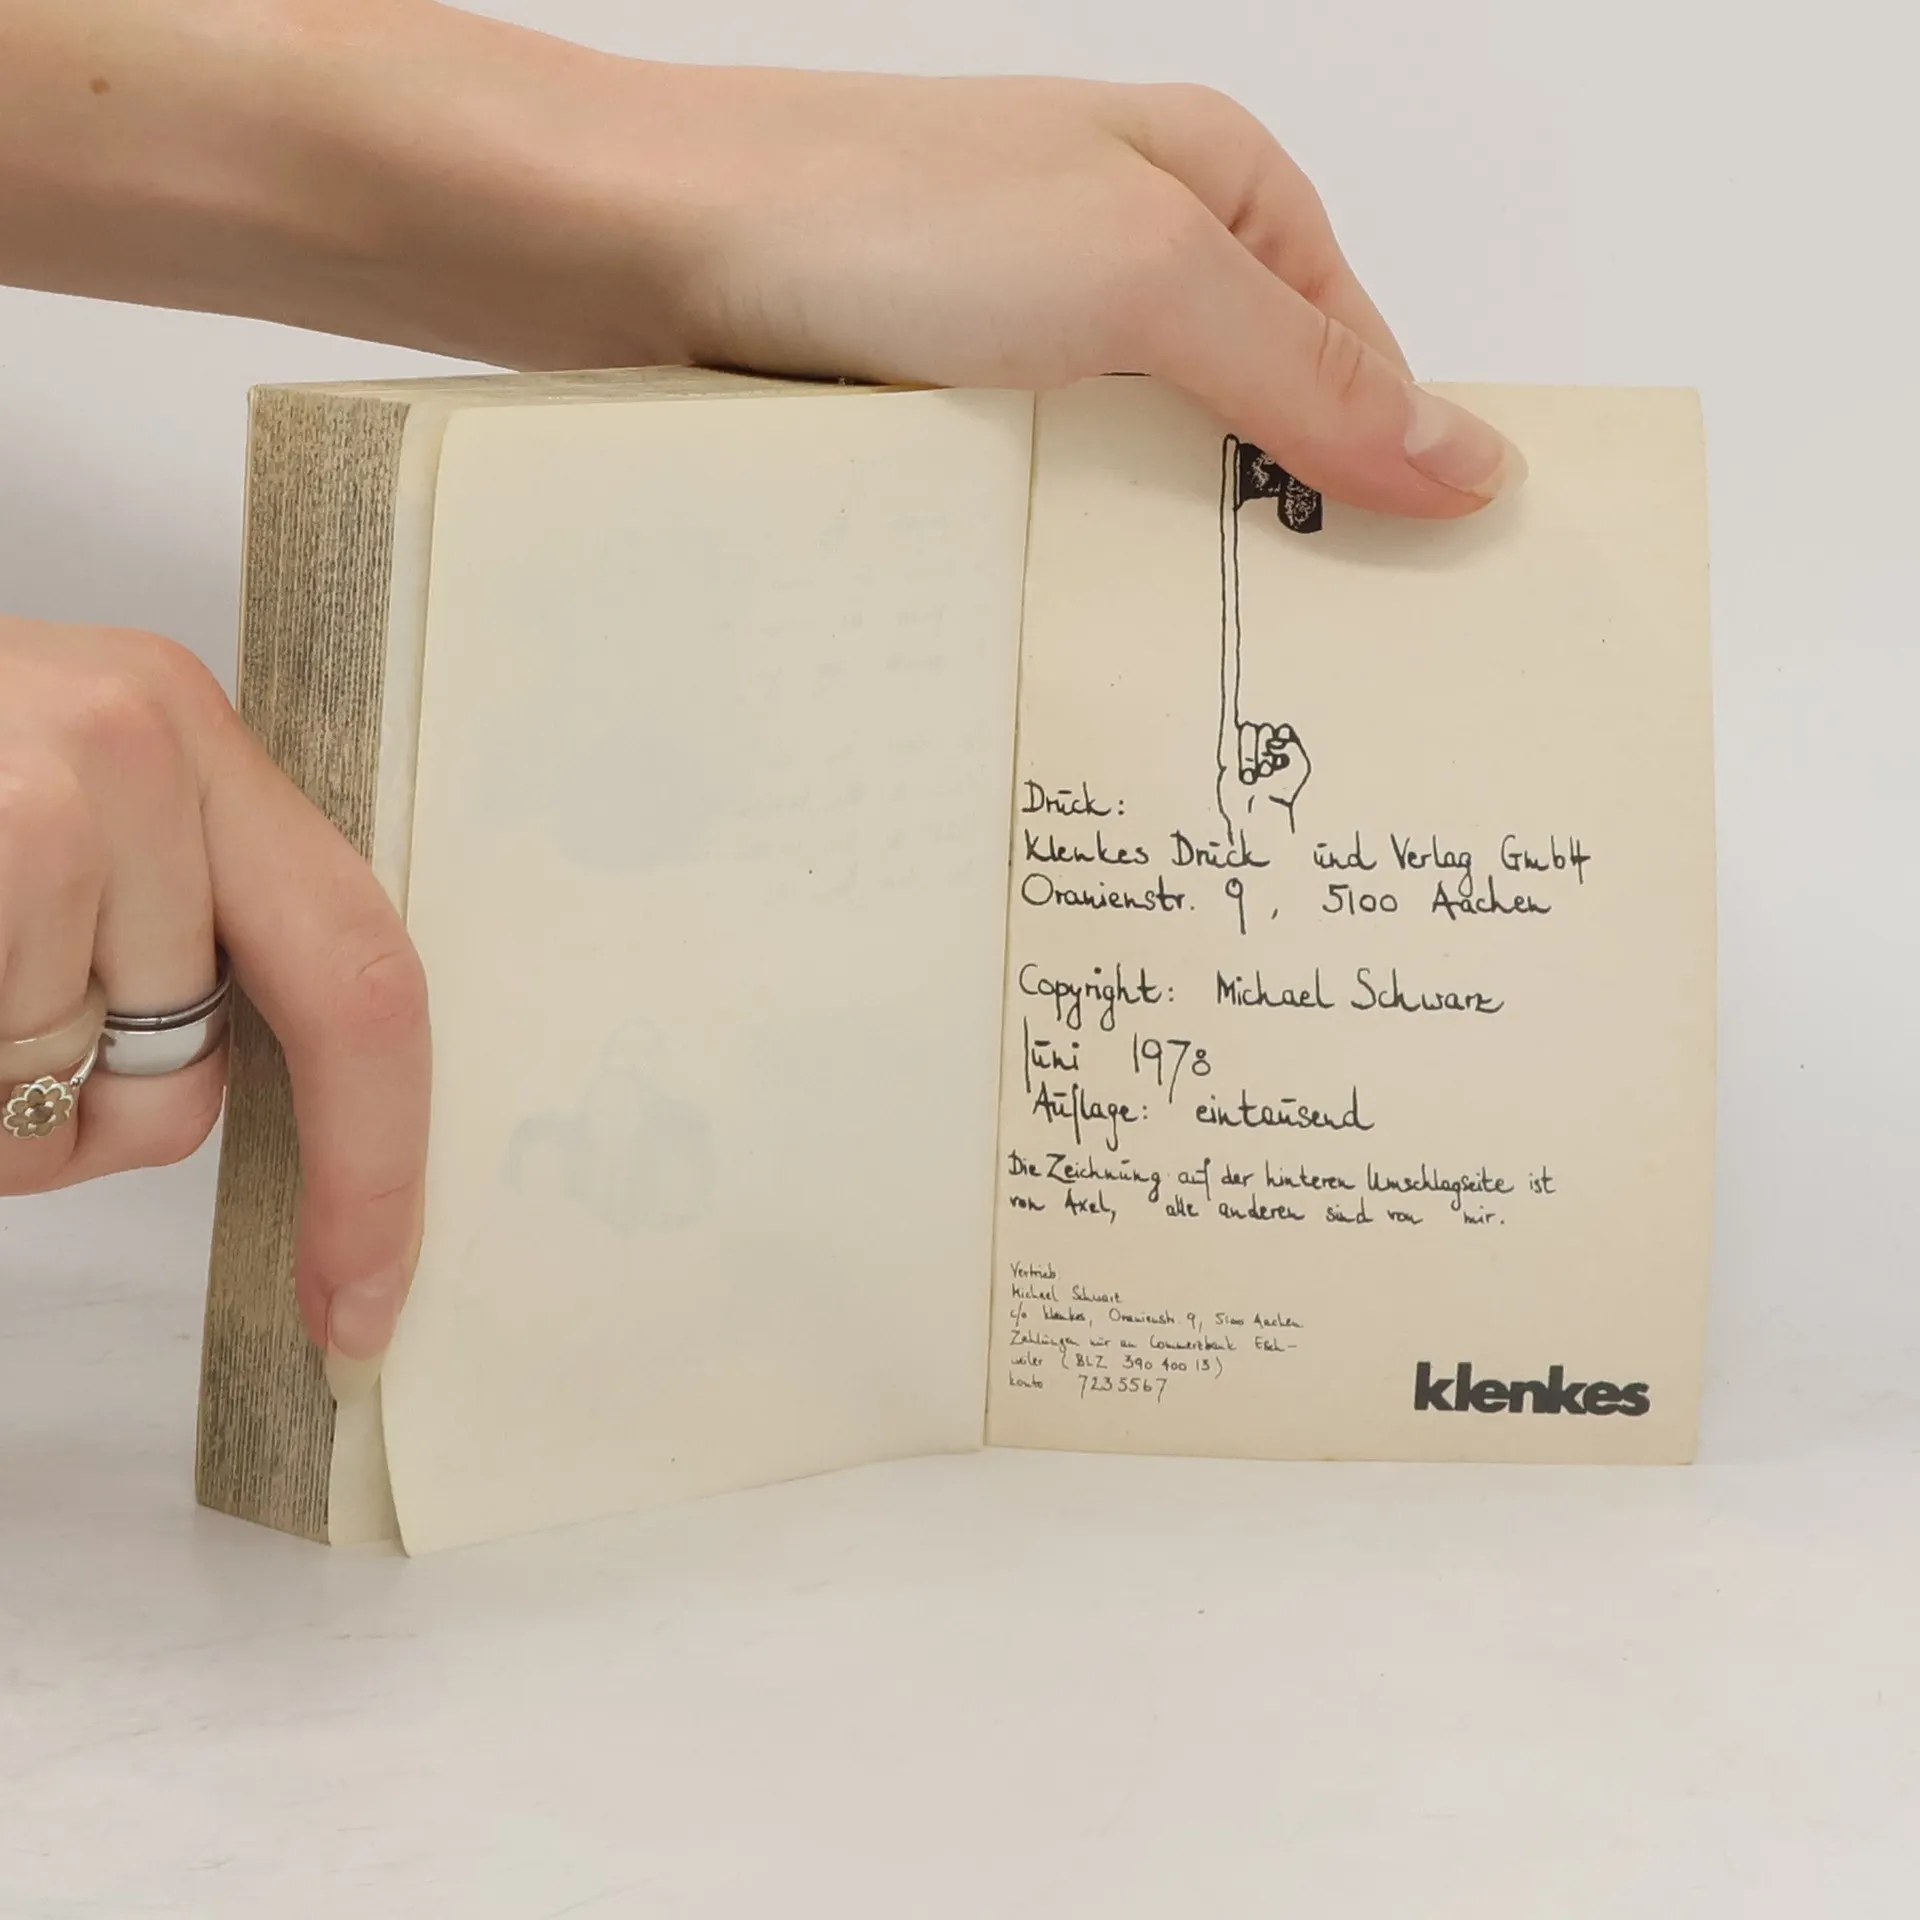 Druck:
Klenkes Druck und Verlag GmbH
Oranienstr. 9, 5100 Aachen
Copyright: Michael Schwarz
Juni 1978
Auflage: eintausend
Die Zeichnung auf der hinteren Umschlagseite ist
von Axel, alle anderen sind von mir.
Vertrieb
Michael Schwarz
c/o klenkes, Oranienstr. 9, 5100 Aachen
Zahlungen nur an Commerzbank Esch-
weiler (BLZ 390 400 13)
konto 7235567
klenkes